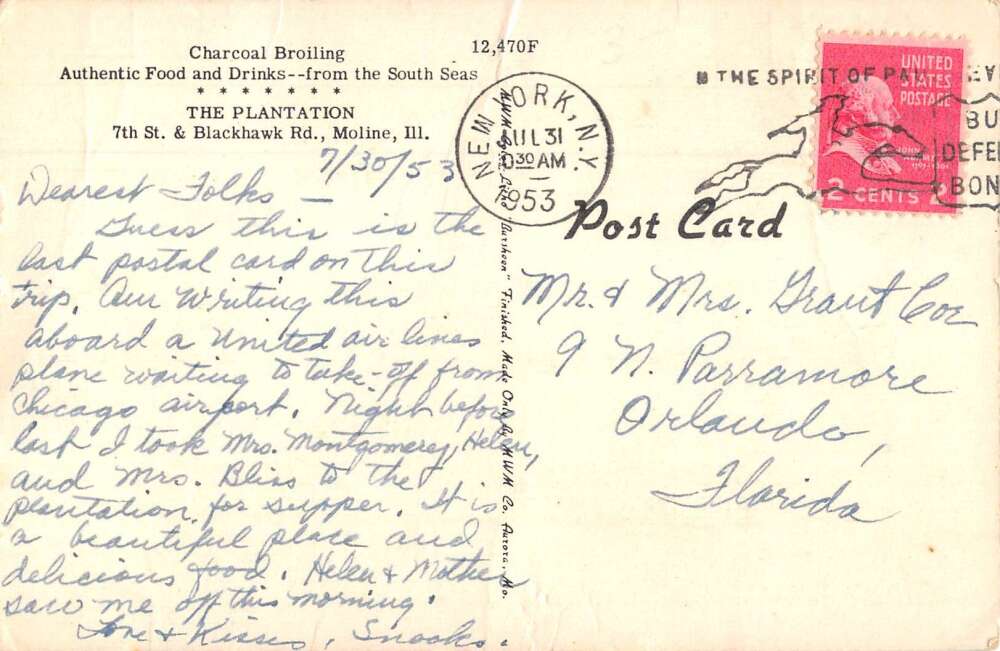 Charcoal Broiling
Authentic Food and Drinks--from the South Seas
* * * * * * *
THE PLANTATION
7th St. & Blackhawk Rd., Moline, Ill.
12,470F
7/30/53
Dearest Folks —
Guess this is the
last postal card on this
trip. Am writing this
aboard a United air lines
plane waiting to take-off from
Chicago airport. Night before
last I took Mrs. Montgomery, Helen,
and Mrs. Bliss to the
plantation for supper. It is
a beautiful place and
delicious food. Helen & Mother
saw me off this morning.
Love & Kisses, Snooks.
"Bursheen" Finished. Made Only By MWM Co. Aurora, Mo.
NEW YORK, N.Y.
JUL 31
30 AM
1953
THE SPIRIT OF
BU
DEFE
BON
UNITED
STATES
POSTAGE
JOHN
2 CENTS 2
Post Card
Mr. & Mrs. Grant Cox
9 N. Parramore
Orlando,
Florida